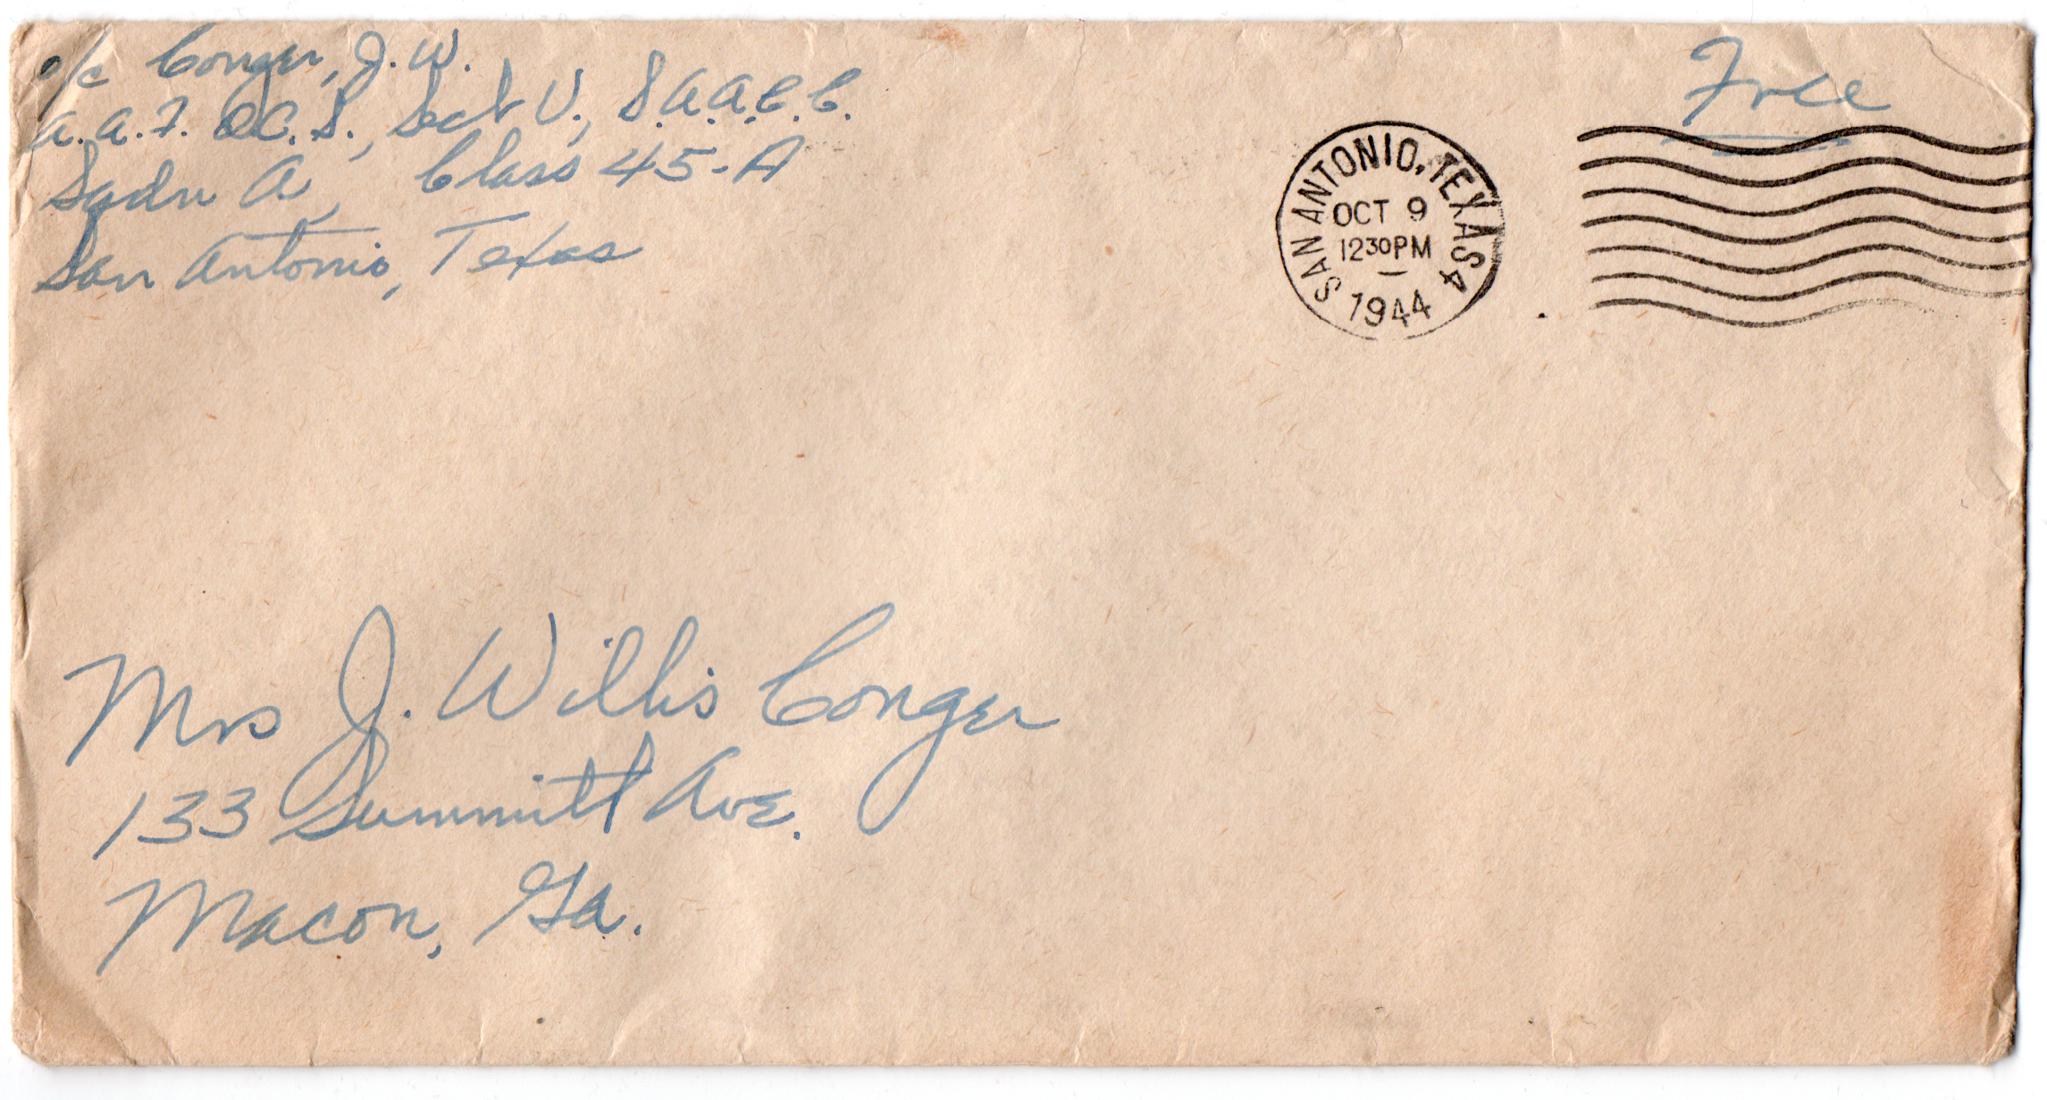 o/c Conger, J. W.
A.A.F. O.C.S., Sect V., S.A.A.C.C.
Sqdn A, Class 45-A
San Antonio, Texas
Free
SAN ANTONIO, TEXAS 4
OCT 9
1230PM
1944
Mrs J. Willis Conger
133 Summitt Ave.
Macon, Ga.